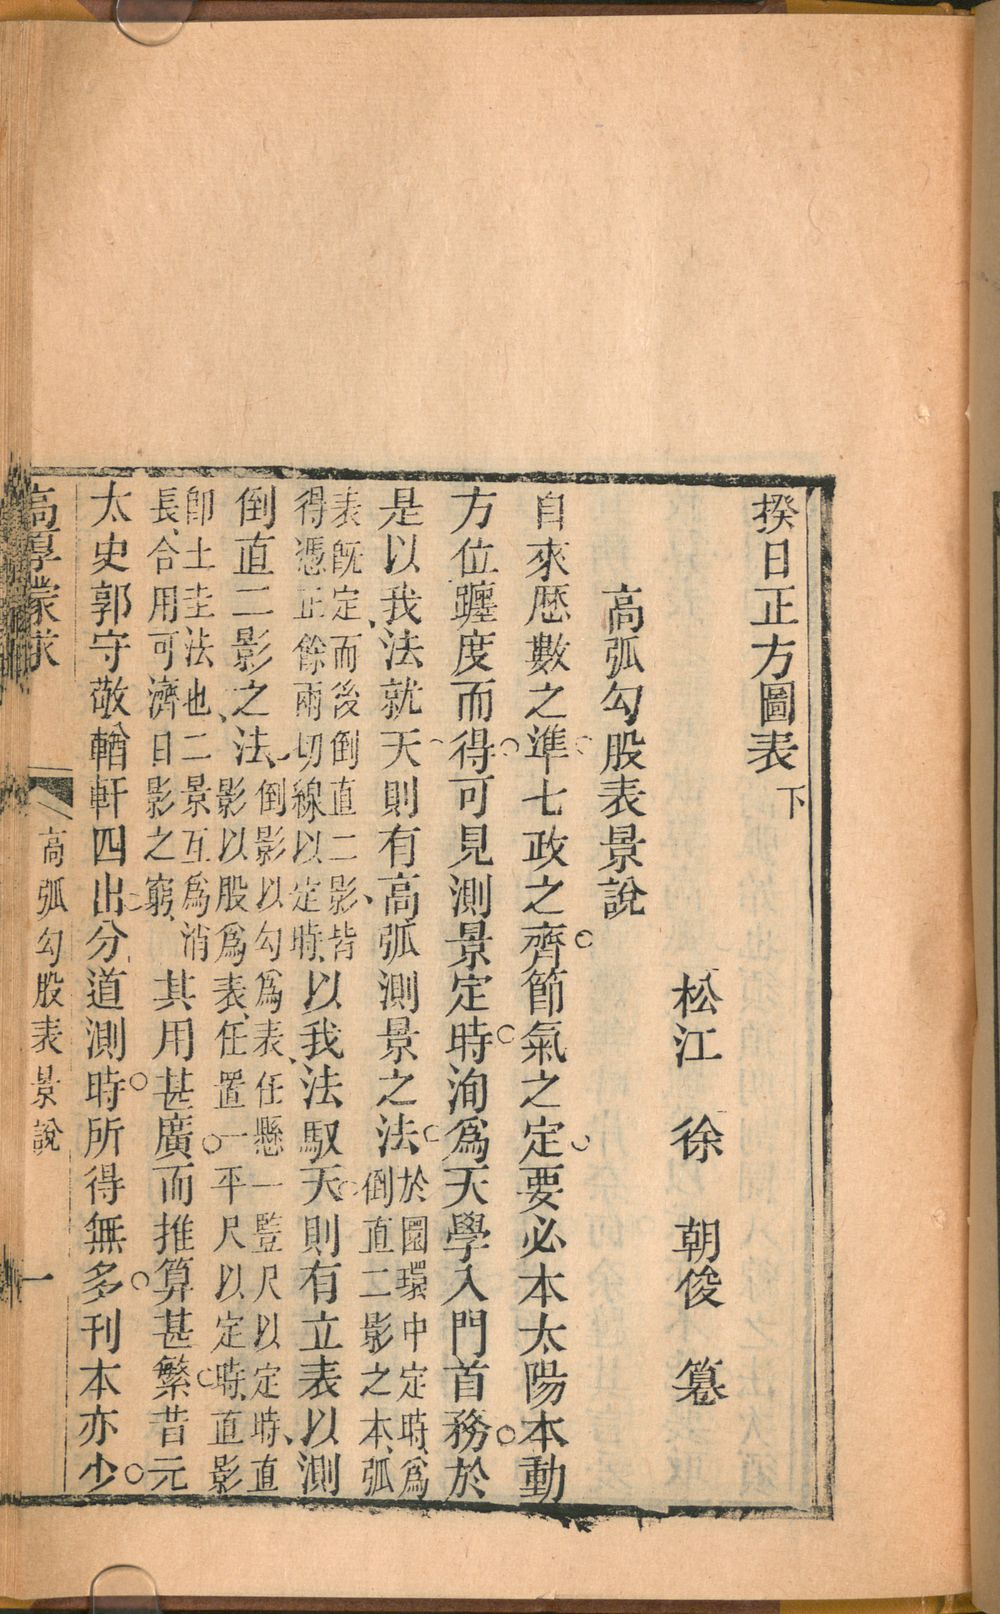 揆日正方圖表 下
松江 徐 朝俊 纂
高弧勾股表景說
自來歷數之準七政之齊節氣之定要必本太陽本動
方位躔度而得可見測景定時洵爲天學入門首務於
是以我法就天則有高弧測景之法於圜環中定時爲
倒直二影之本弧
表旣定而後倒直二影皆
得憑正餘兩切線以定時以我法馭天則有立表以測
倒直二影之法倒影以勾爲表任懸一豎尺以定時直
影以股爲表任置一平尺以定時直影
卽土圭法也二景互爲消
長合用可濟日影之窮其用甚廣而推算甚繁昔元
太史郭守敬輶軒四出分道測時所得無多刊本亦少
高厚蒙求 高弧勾股表景說 一